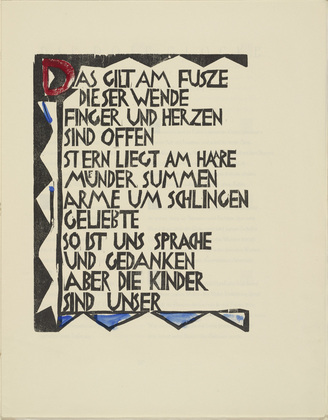 DAS GILT AM FUSZE
DIESER WENDE
FINGER UND HERZEN
SIND OFFEN
STERN LIEGT AM HAARE
MUENDER SUMMEN
ARME UM SCHLINGEN
GELIEBTE
SO IST UNS SPRACHE
UND GEDANKEN
ABER DIE KINDER
SIND UNSER